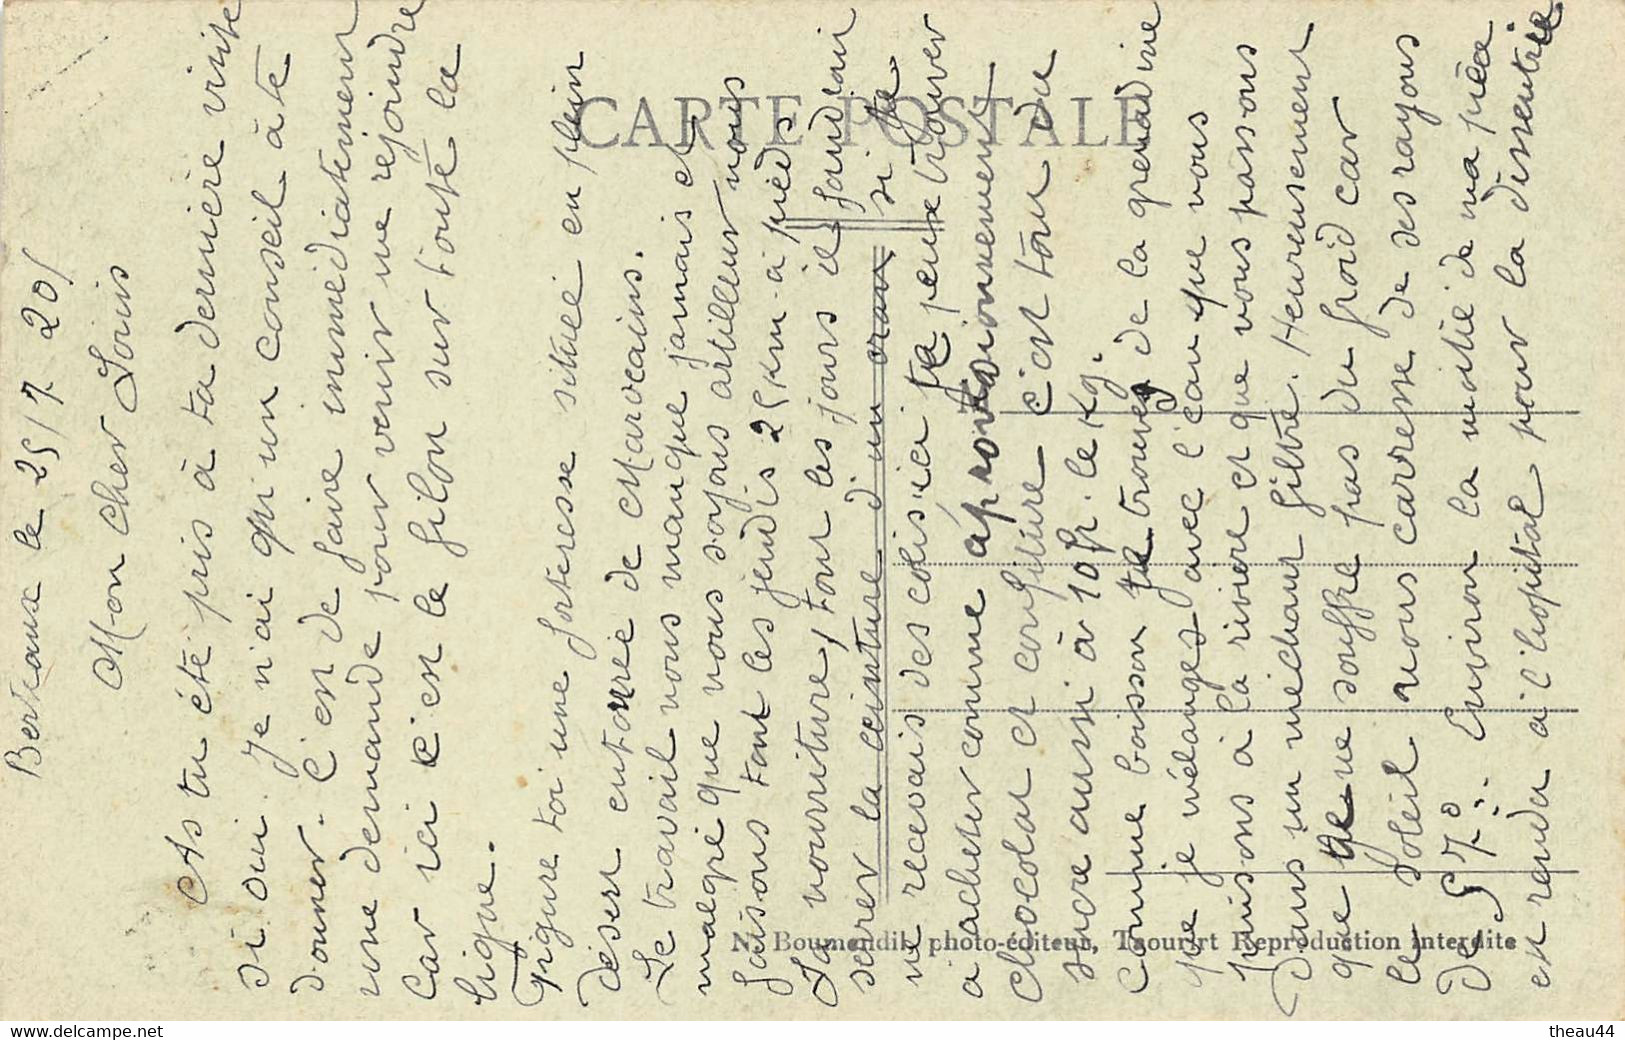 Berteaux le 25/7 20
Mon cher Louis
As tu été pris à ta dernière visite
si oui. Je n'ai qu'un conseil à te
donner. C'est de faire immédiatement
une demande pour venir me rejoindre
car ici c'est le filon sur toute la
ligne.
Figure toi une forteresse située en plein
désert entourée de Marocains.
Le travail nous manque jamais et
malgré que nous soyons artilleur nous
faisons tout les jeudis 25 km à pieds
La nourriture, tout les jours il faudrait
serrer la ceinture d'un cran si je
ne recevais des colis ici je peux trouver
à archeter comme aprovisionnement
Chocolat et confiture c'est tout du
sucre aussi à 10 fr. le Kg.
Comme boisson je trouve de la grenadine
que je mélanges avec l'eau que nous
puisons à la rivière et que nous passons
Dans un méchant filtre. Heureusement
que je ne souffre pas du froid car
le soleil nous carresse de ses rayons
de 57°. Environ la moitié de ma pièce
est rendu à l'hopital pour la dissentrie
CARTE POSTALE
N. Boumendil, photo-éditeur, Taourirt Reproduction interdite
www.delcampe.net
theau44